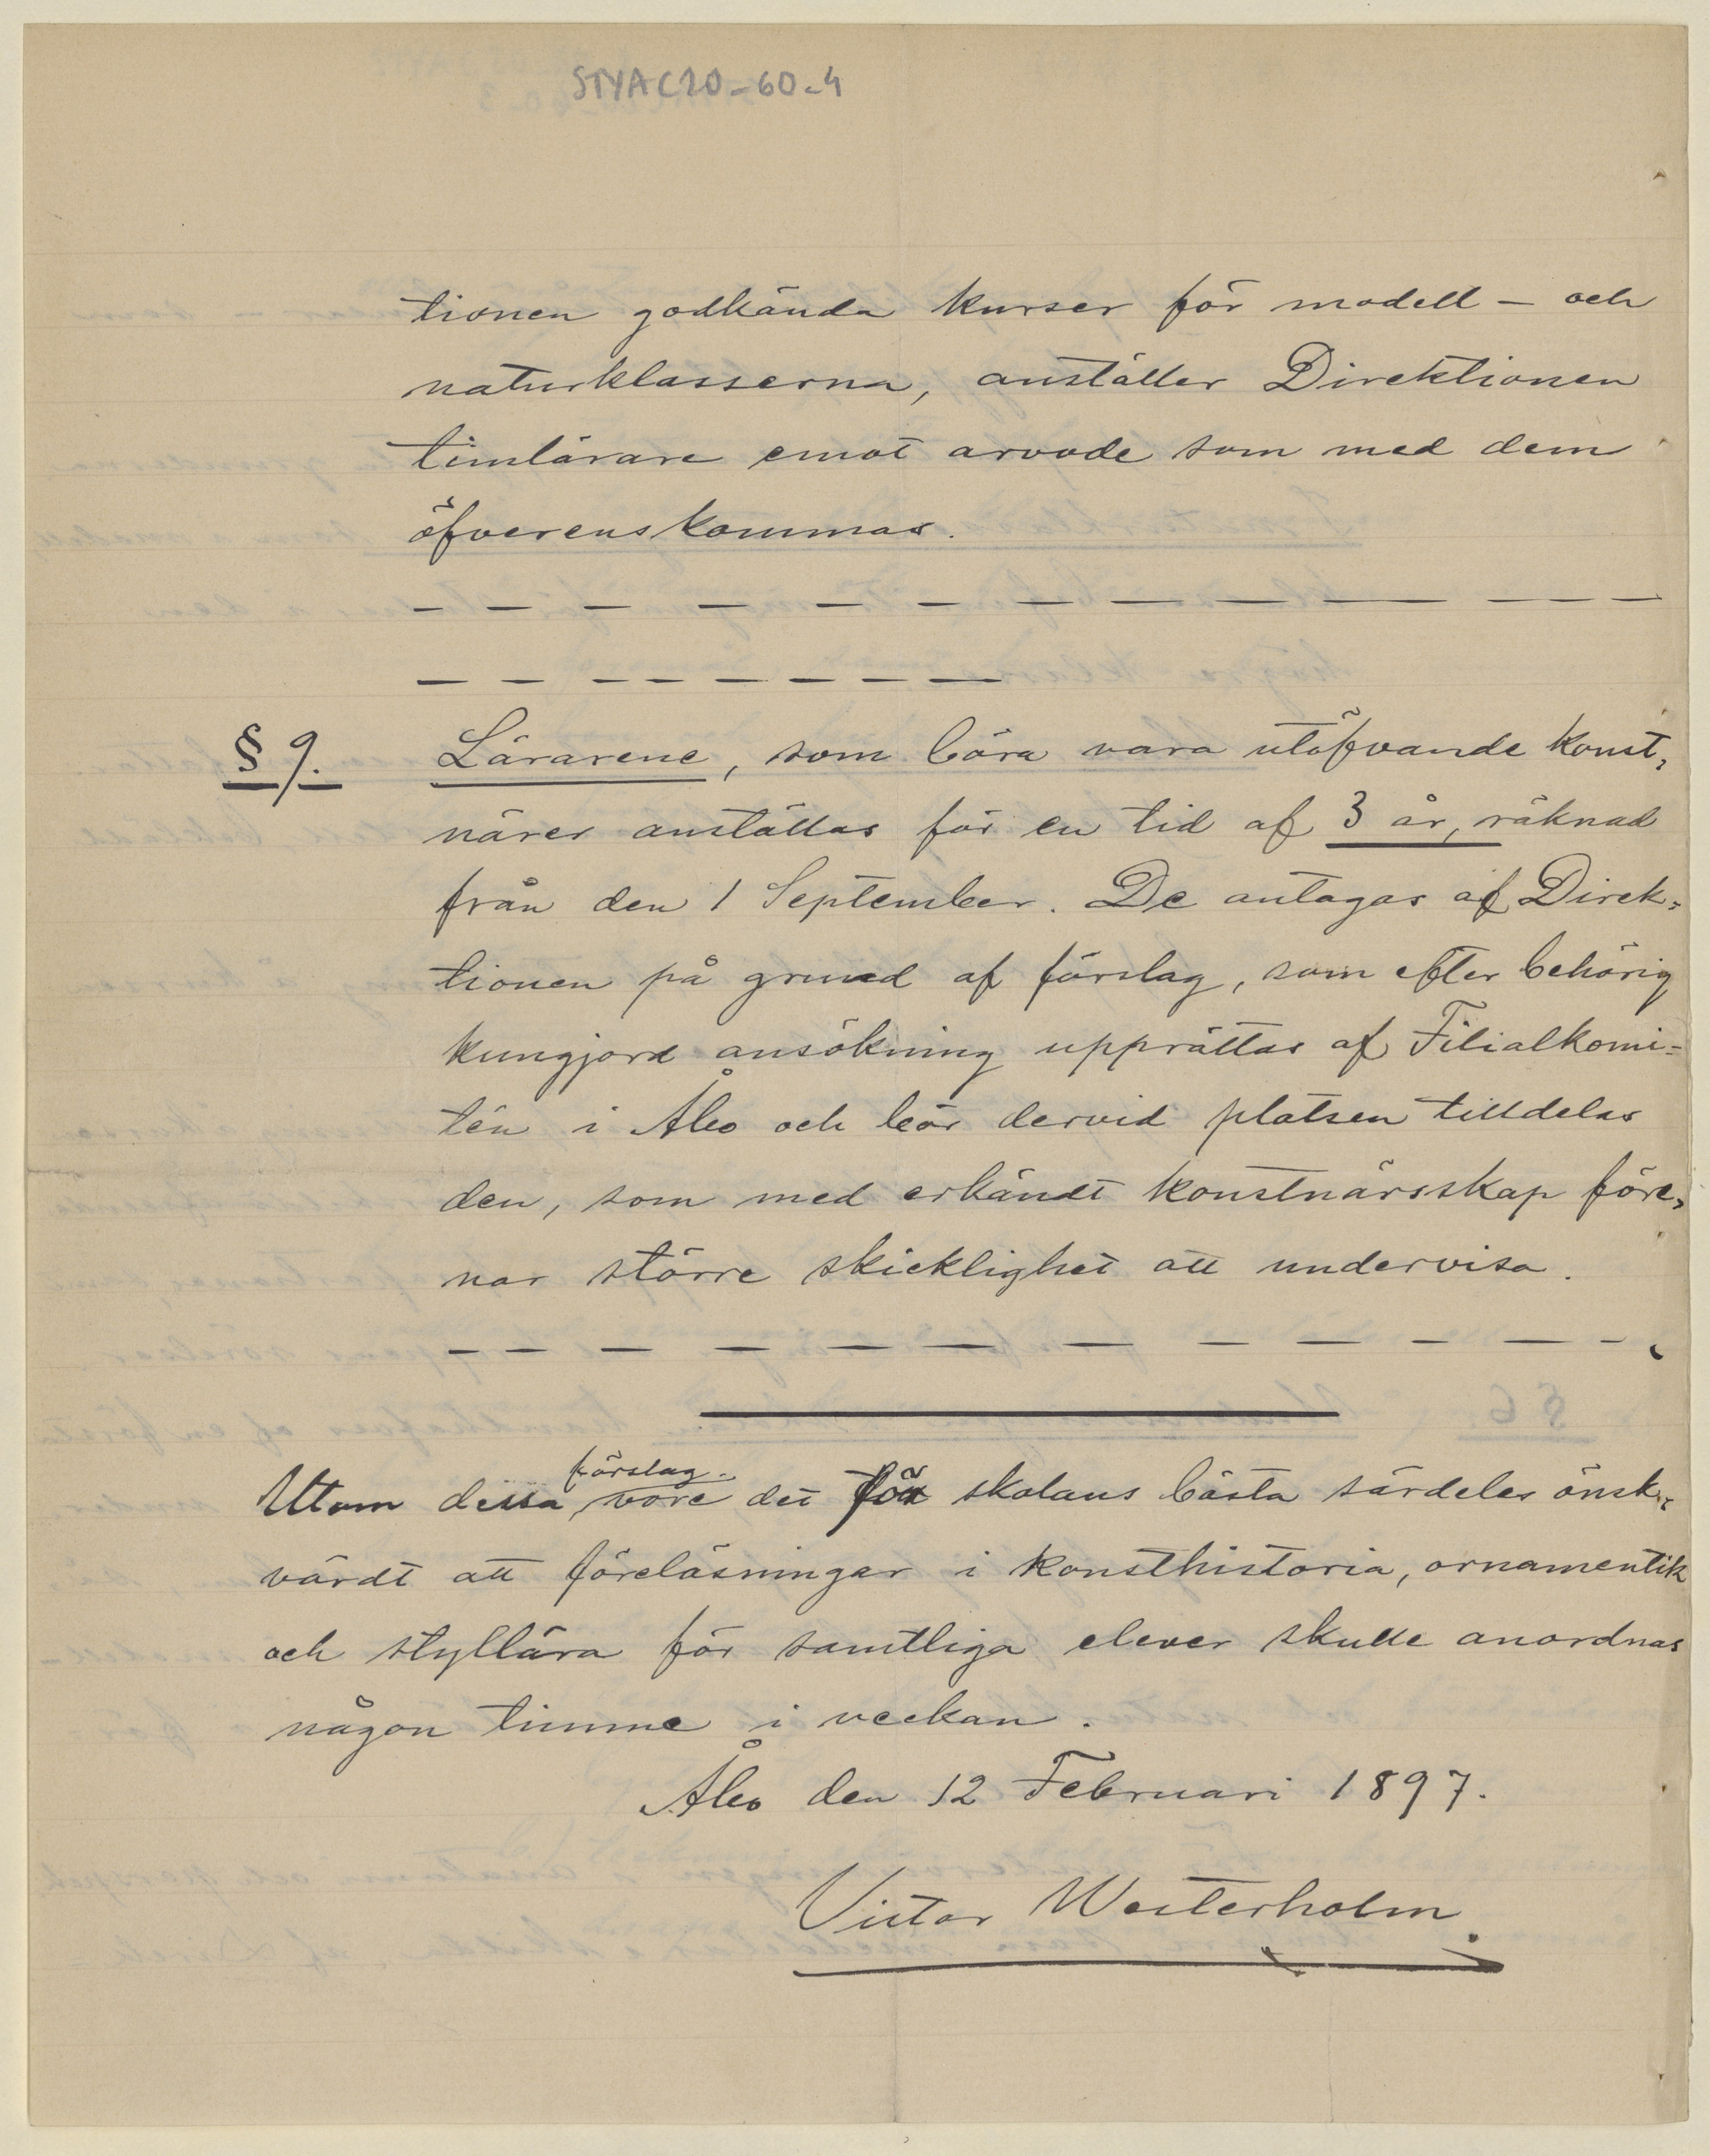 STYA C20-60-4
tionen godkända kurser för modell- och
naturklasserna, anställer Direktionen
timlärare emot arvode som med dem
öfverenskommas.
— — — — — — — — — — — — —
— — — — — — — —
§ 9. Lärarene, som böra vara utöfvande konst-
närer anställas för en tid af 3 år, räknad
från den 1 September. De antagas af Direk-
tionen på grund af förslag, som efter behörig
kungjord ansökning upprättas af Filialkomi-
tén i Åbo och bör dervid platsen tilldelas
den, som med erkändt konstnärsskap före-
nar större skicklighet att undervisa.
— — — — — — — — — — — —
förslag
Utom dessa, vore det för skolans bästa särdeles önsk-
värdt att föreläsningar i konsthistoria, ornamentik
och styllära för samtliga elever skulle anordnas
någon timme i veckan.
Åbo den 12 Februari 1897.
Victor Westerholm